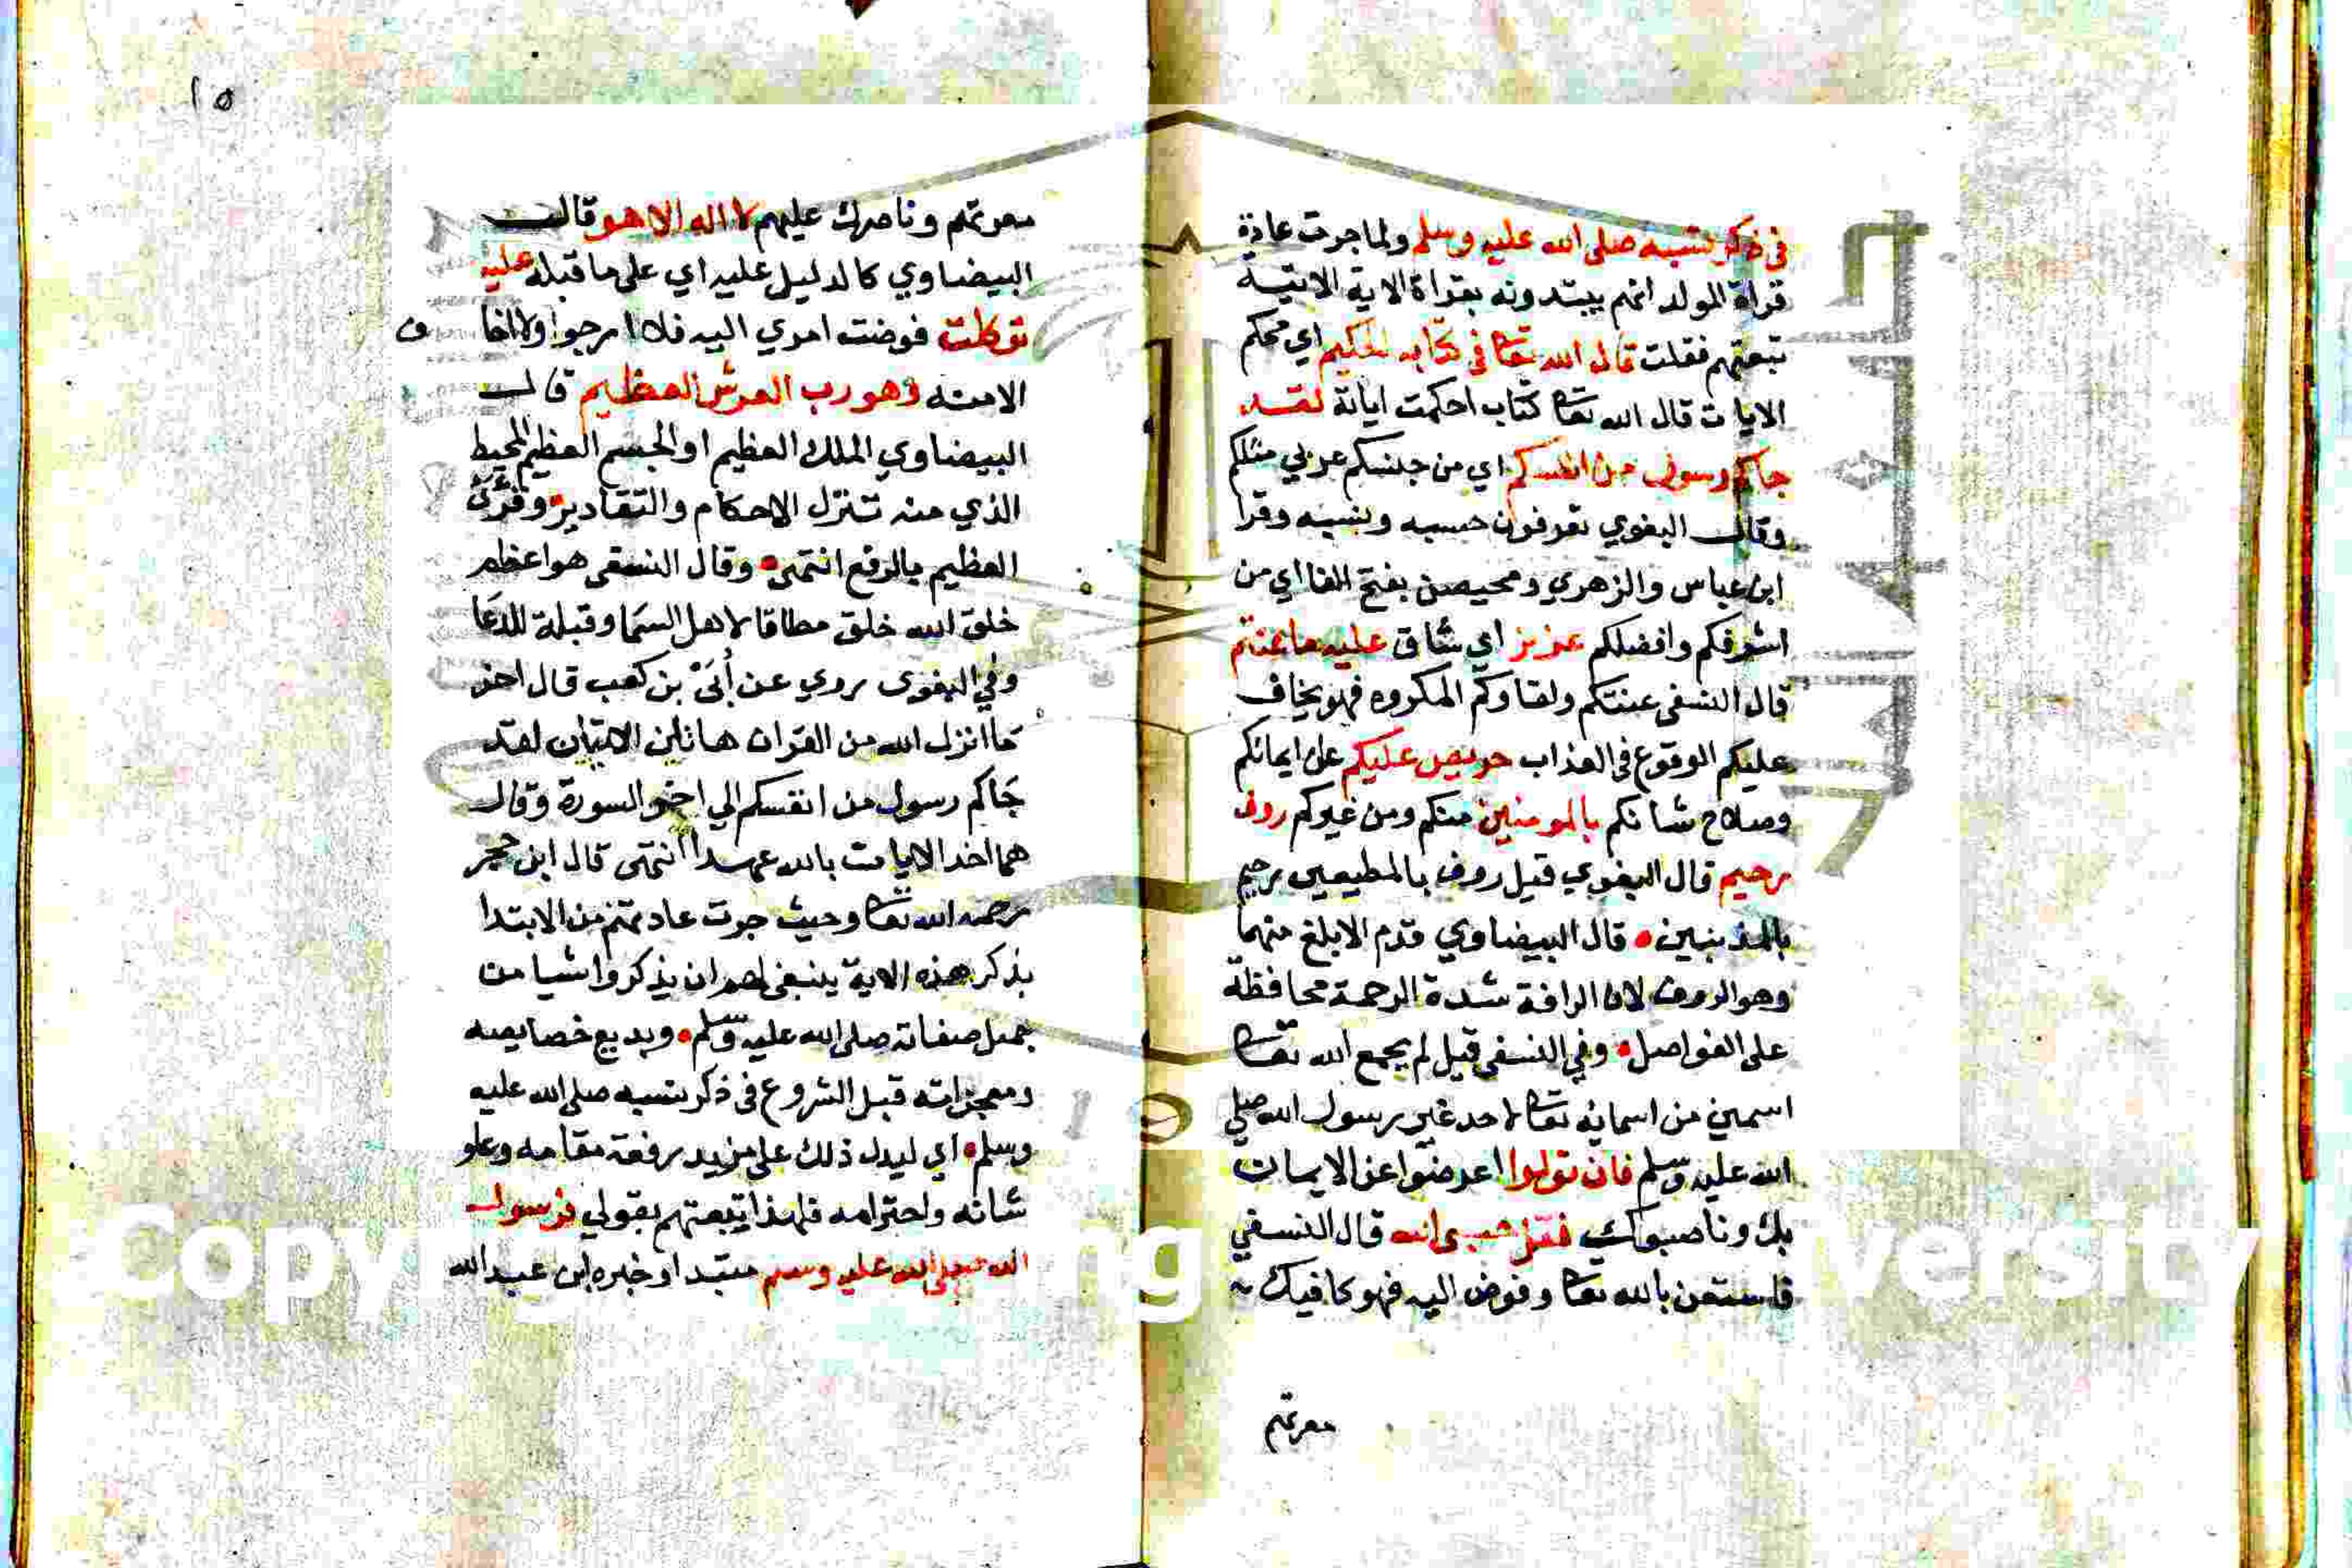 في ذكر نسبه صلى الله عليه وسلم ولما جرت عادة
قراة المولد انهم يبتدونه بقراة الاية الاتية
تبعتهم فقلت قال الله تعا في كتابه الحكيم اي محكم
الايات قال الله تعا كتاب احكمت اياتة لقد
جاكم رسول من انفسكم اي من جنسكم عربي مثلكم
وقال البغوي تعرفون حسبه ونسبه وقرا
ابن عباس والزهري ومحيصن بفتح الفا اي من
اشرفكم وافضلكم عزيز اي شاق عليه ما عنتم
قال النسفي عنتكم ولقاوكم المكروه فهو يخاف
عليكم الوقوع في العذاب حريص عليكم على ايمانكم
وصلاح شانكم بالمومنين منكم ومن غيركم روف
رحيم قال البغوي قيل روف بالمطيعين رحيم
بالمذنبين قال البيضاوي قدم الابلغ منهما
وهو الروف لان الرافة شدة الرحمة محافظة
على الفواصل وفي النسفي قيل لم يجمع الله تعا
اسمين من اسمائه تعا لاحد غير رسول الله صلى
الله عليه وسلم فان تولوا اعرضوا عن الايمان
بك وناصبوك فقل حسبي الله قال النسفي
فاستعن بالله تعا وفوض اليه فهو كافيك
معرتهم
١٥
معرتهم وناصرك عليهم لا اله الا هو قال
البيضاوي كالدليل عليه اي على ما قبله عليه
توكلت فوضت امري اليه فلا ارجوا ولا اخاف
الامنه وهو رب العرش العظيم قال
البيضاوي الملك العظيم او الجسم العظيم المحيط
الذي منه تنزل الاحكام والتقادير وقرئ
العظيم بالرفع انتهى وقال النسفي هو اعظم
خلق الله خلق مطافا لاهل السما وقبلة للدعا
وفي البغوى روي عن أبيّ بن كعب قال اخر
ما انزل الله من القران هاتان الايتان لقد
جاكم رسول من انفسكم الي اخر السورة وقال
هما احد الايات بالله عهدا انتهى قال ابن حجر
رحمه الله تعا وحيث جرت عادتهم من الابتدا
بذكر هذه الاية ينبغي لهم ان يذكروا شيا من
جميل صفاته صلى الله عليه وسلم وبديع خصايصه
ومعجزاته قبل الشروع في ذكر نسبه صلى الله عليه
وسلم اي ليدل ذلك على مزيد رفعة مقامه وعلو
شانه واحترامه فلهذا تبعتهم بقولي فرسول
الله صلى الله عليه وسلم مبتدا وخبره ابن عبد الله